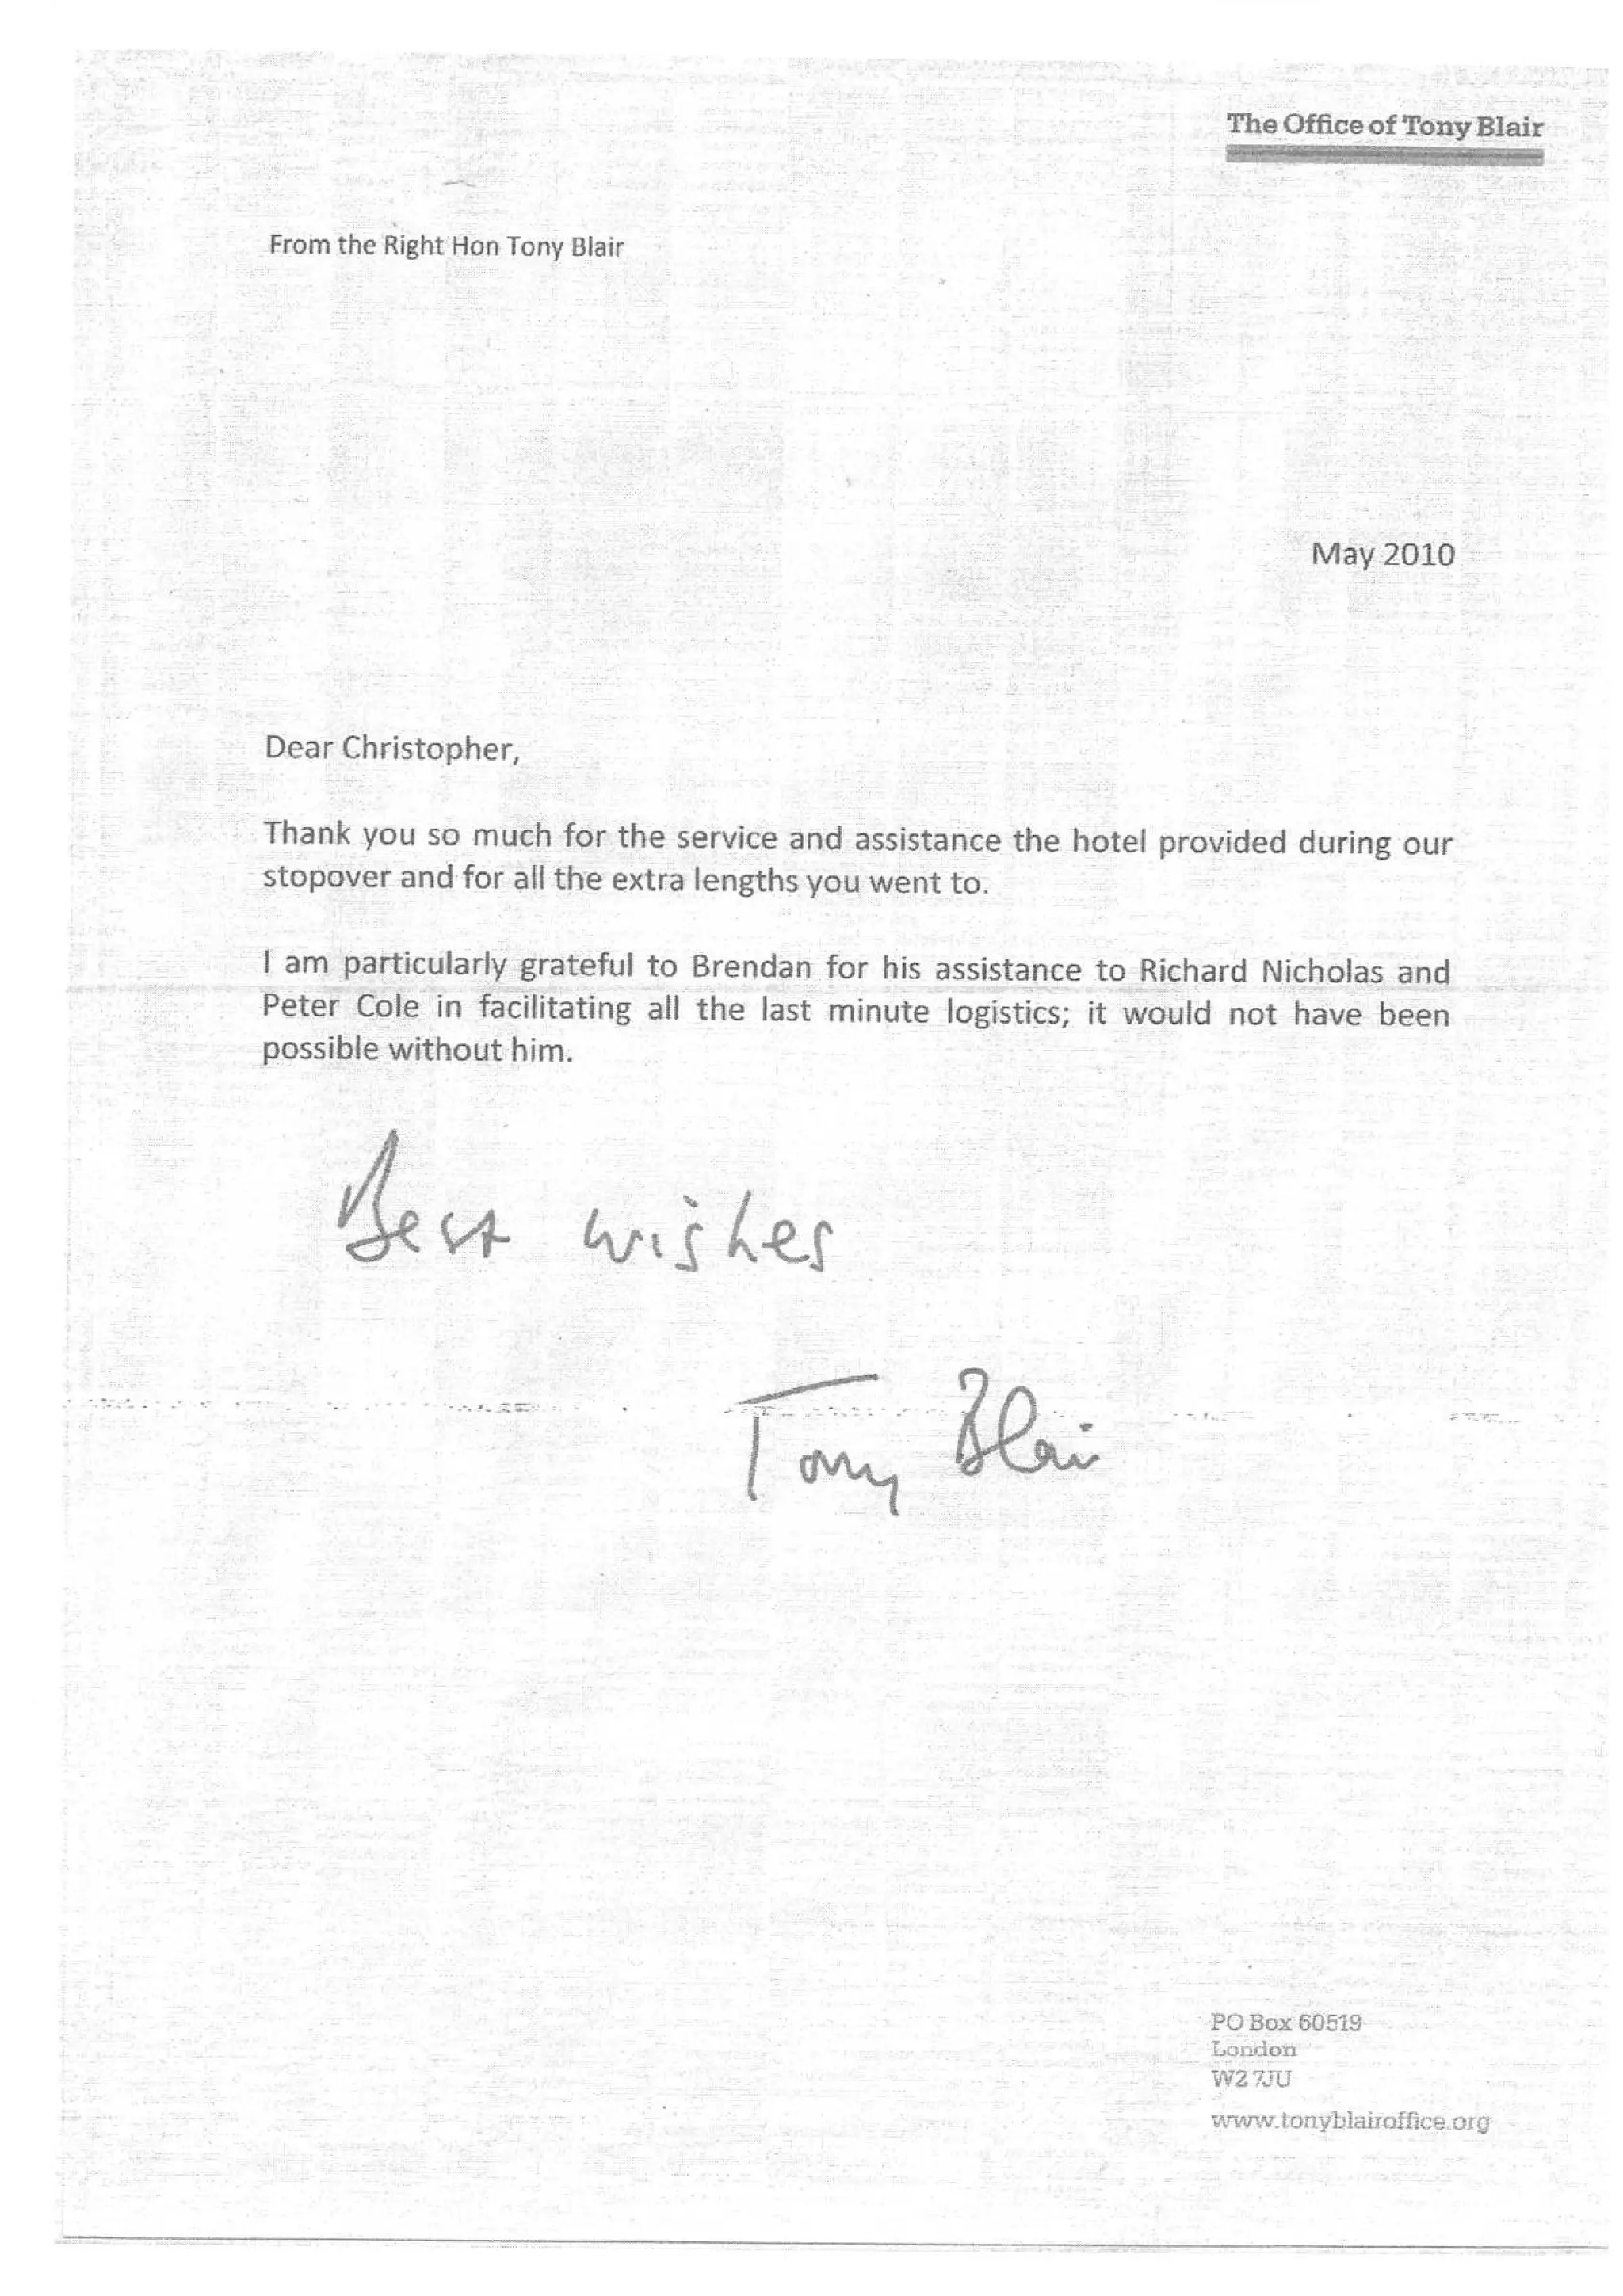 The Office of Tony Blair
From the Right Hon Tony Blair
May 2010
Dear Christopher,
Thank you so much for the service and assistance the hotel provided during our
stopover and for all the extra lengths you went to.
I am particularly grateful to Brendan for his assistance to Richard Nicholas and
Peter Cole in facilitating all the last minute logistics; it would not have been
possible without him.
Best wishes
Tony Blair
PO Box 60519
London
W2 7JU
www.tonyblairoffice.org